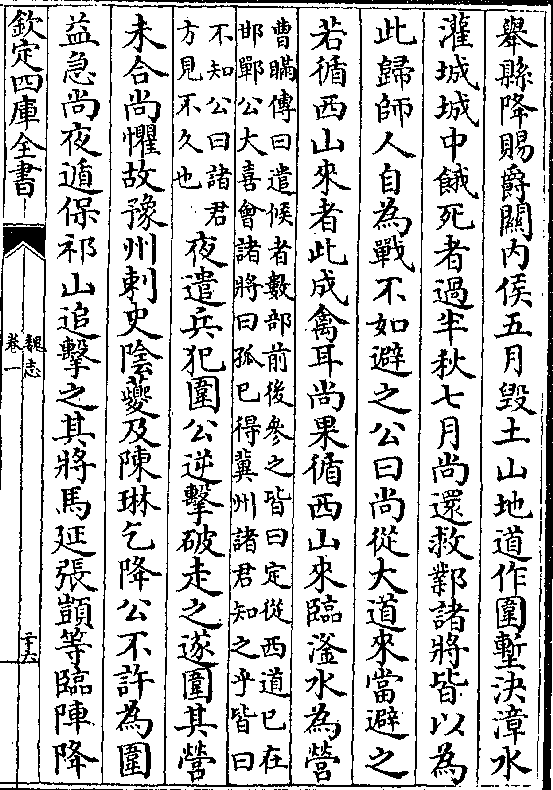 舉縣降賜爵關内侯五月毀土山地道作圍塹決漳水
灌城城中餓死者過半秋七月尚還救鄴諸將皆以為
此歸師人自為戰不如避之公曰尚從大道來當避之
若循西山來者此成禽耳尚果循西山來臨滏水為營
曹瞞傳曰遣候者數部前後參之皆曰定從西道已在
邯鄲公大喜會諸將曰孤已得冀州諸君知之乎皆曰
不知公曰諸君
方見不久也
夜遣兵犯圍公逆擊破走之遂圍其營
未合尚懼故豫州刺史陰夔及陳琳乞降公不許為圍
益急尚夜遁保祁山追擊之其將馬延張顗等臨陣降
欽定四庫全書
魏志
卷一
二十六